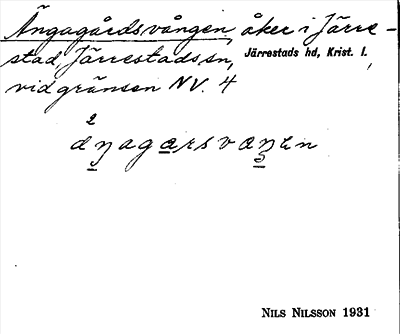 Ängagårdsvången, åker i Järre-
stad, Järrestads sn, Järrestads hd, Krist. l.,
vid gränsen NV. 4
2
NILS NILSSON 1931